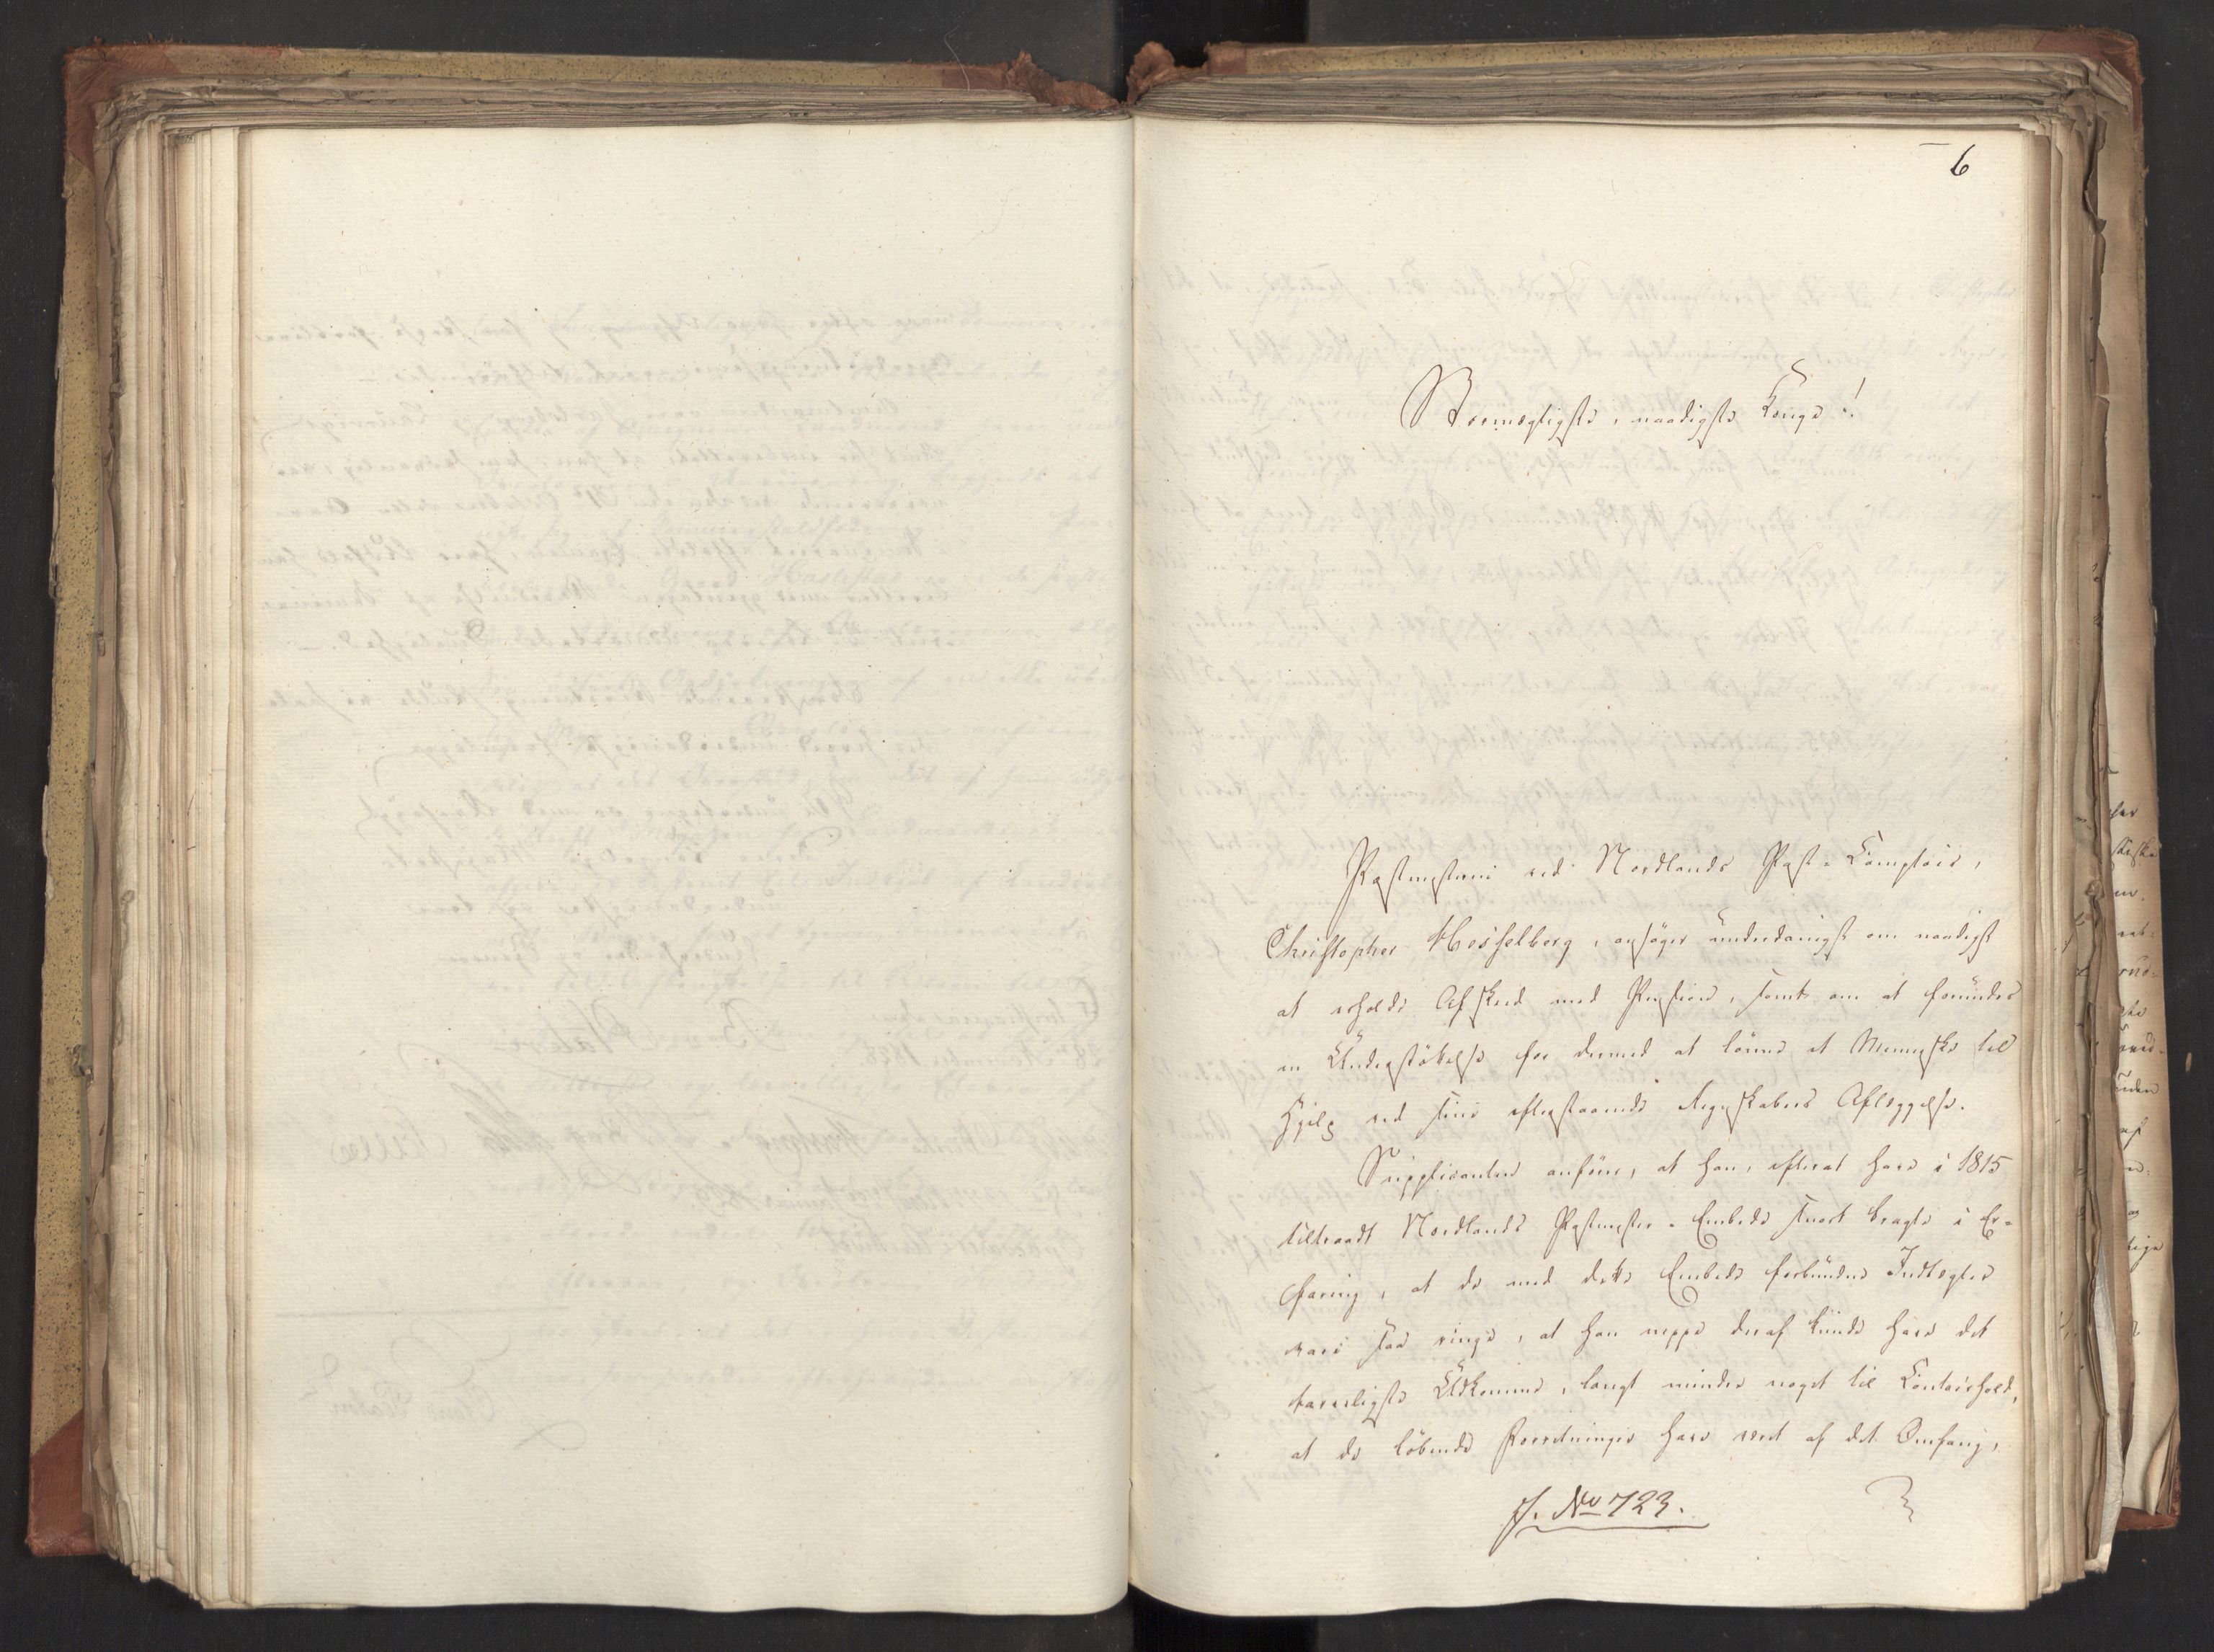 6
Stormægtigste, naadigste Konge!
Postmesteren ved Nordlands Post-Comptoir,
Christopher Hesselberg, ansøger underdanigst om naadigst
at erholde Afskeed med Pension, samt om at forundes
en Understøttelse for dermed at lønne et Menneske til
Hjelp ved sine efterstaaende Regnskabers Aflæggelse.
Supplicanten anfører, at han, efterat have i 1815
tiltraadt Nordlands Postmester-Embede snart bragte i Er-
faring, at de med dette Embede forbundne Indtægter
vare saa ringe, at han neppe deraf kunde have det
tarveligste Udkomme, langt mindre noget til Contoirhold,
at de løbende Forretninger have været af det Omfang,
J. No 723.